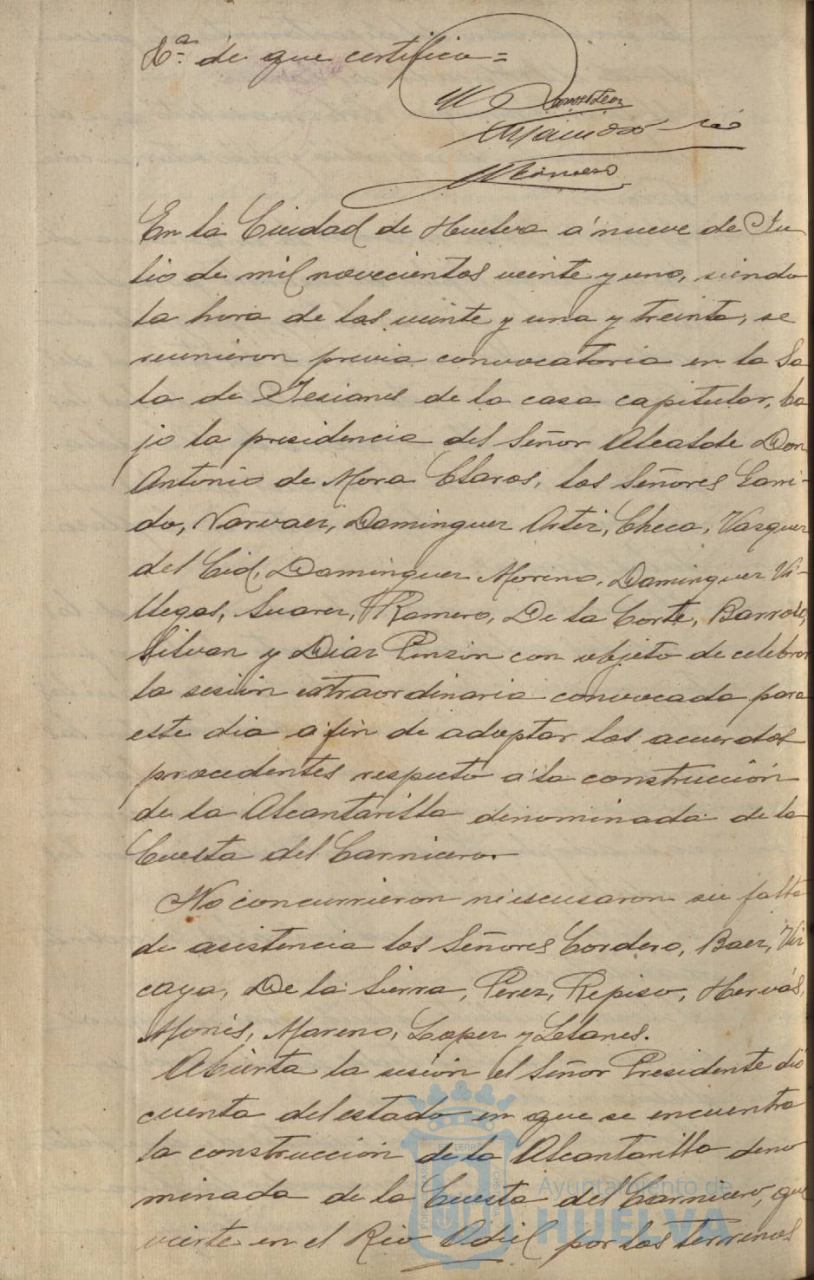 Hª de que certifico=
En la Ciudad de Huelva á nueve de Ju-
lio de mil novecientos veinte y uno, siendo
la hora de las veinte y una y treinta, se
reunieron previa convocatoria en la Sa
la de Sesiones de la casa capitular, ba
jo la presidencia del Señor Alcalde Don
Antonio de Mora Claros, los Señores Garri-
do, Narvaez, Dominguez, Checa, Vazquez
del Cid, Dominguez Moreno, Dominguez Vi-
llegas, Suarez, Romero, De la Corte,
Silvan y Diaz Pinzón con objeto de celebrar
la sesión extraordinaria convocada para
este dia a fin de adoptar los acuerdos
procedentes respecto a la construcción
de la Alcantarilla denominada de la
Cuesta del Carnicero.
No concurrieron ni escusaron su falta
de asistencia los Señores Cordero, Baez, Viz
caya, De la Sierra, Perez, Repiso, Hervás,
Monis, Moreno, Lopez y
Abierta la sesión el Señor Presidente dió
cuenta del estado en que se encuentra
la construcción de la Alcantarilla deno
minada de la Cuesta del Carnicero, que
vierte en el Rio Odiel por los terrenos
Ayuntamiento de
HUELVA